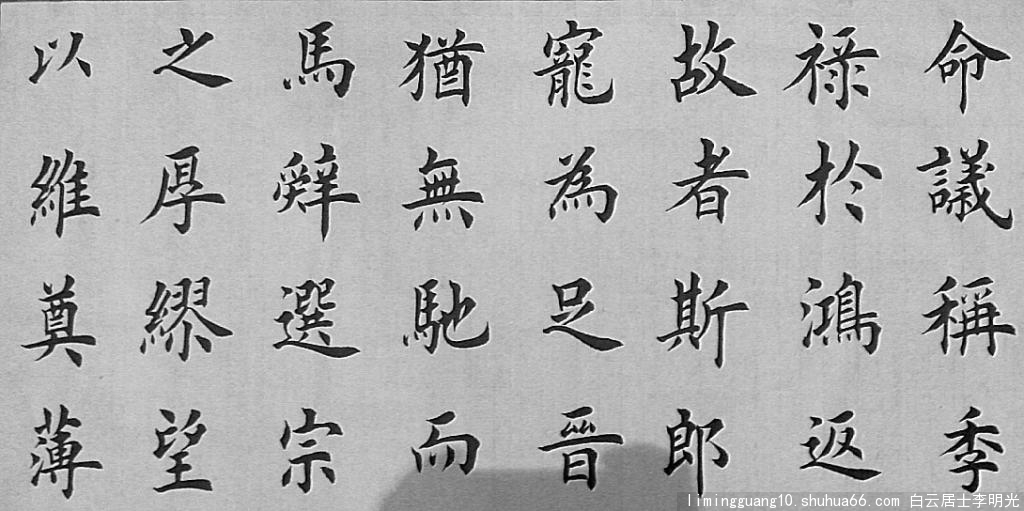 命議稱季
禄於鴻返
故者斯郎
寵為足晉
猶無馳而
馬辤選宗
之厚繆望
以維奠薄
limingguang10.shuhua66.com 白云居士李明光